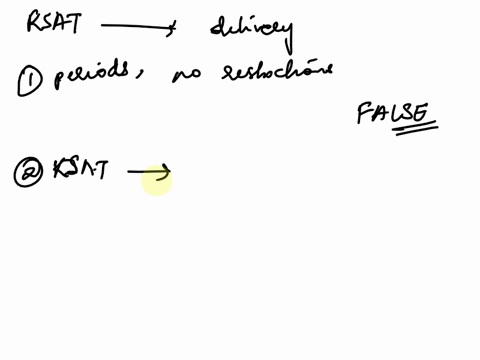 RSAT → delivery
① periods, no restrictions
FALSE
② RSAT →